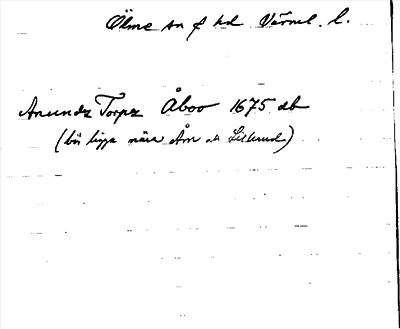 Ölme sn f hd Värml. l.
Anundz Torpz Åboo 1675 db
(bör ligga nära Åm och Lillerud)